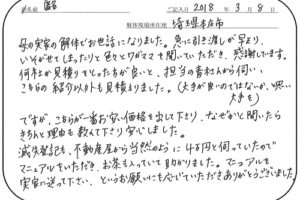 ご記入日 2018年 3月 8日
解体現場所在地 埼玉県本庄市
母の実家の解体でお世話になりました。急に引き渡しが早まり、
いそがせてしまったりと色々とワガママを聞いていただき、感謝しています。
何社か見積りをとった方が良いと、担当の者さんから伺い、
こちらの紹介以外も見積りました。（大手が良いのではないか、と思い
大手を）
ですが、こちらが一番お安い価格を出して下さり、なぜかと聞いたら
きちんと理由も教えて下さり安心しました。
滅失登記も、不動産屋から当然のように4万円と伺っていたので
マニュアルをいただき、お茶も入っていて助かりました。マニュアルを
実家に送って下さい、というお願いにも応じていただきありがとうございました。